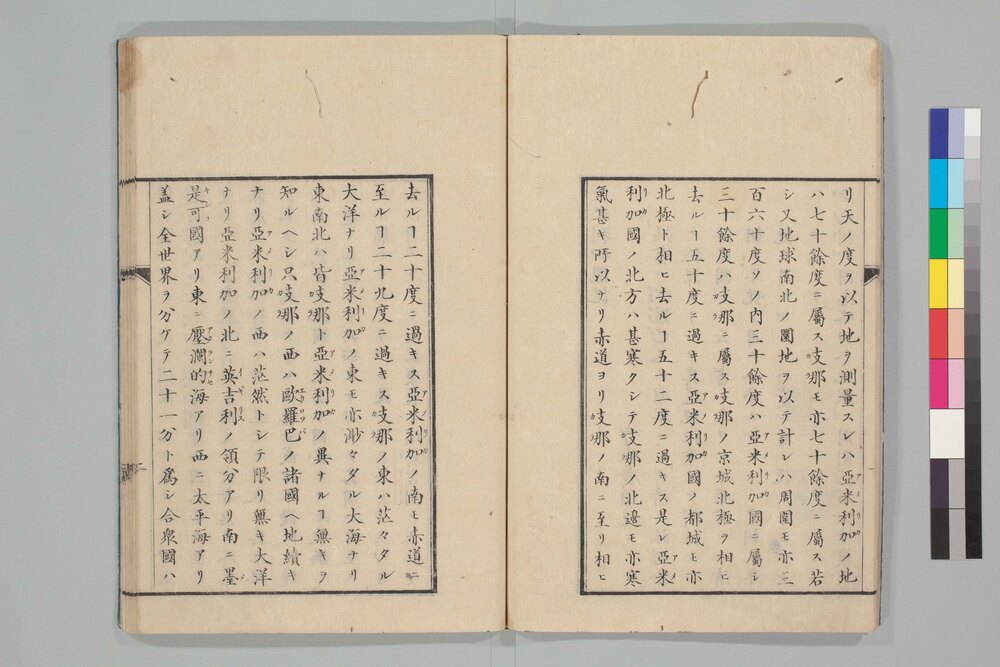 リ天ノ度ヲ以テ地ヲ測量スレハ亞米利加ノ地
ハ七十餘度ニ屬ス支那モ亦七十餘度ニ屬ス若
シ又地球南北ノ圍地ヲ以テ計レハ周圍モ亦三
百六十度ソノ内三十餘度ハ亞米利加國ニ屬シ
三十餘度ハ支那ニ屬ス支那ノ京城北極ヲ相ヒ
去ルヿ五十度ニ過キス亞米利加國ノ都城モ亦
北極ト相ヒ去ルヿ五十二度ニ過キス是レ亞米
利加國ノ北方ハ甚寒クシテ支那ノ北邉モ亦寒
氣甚キ所以ナリ赤道ヨリ支那ノ南ニ至リ相ヒ
去ルヿ二十度ニ過キス亞米利加ノ南モ赤道ニ
至ルヿ二十九度ニ過キス支那ノ東ハ茫々タル
大洋ナリ亞米利加ノ東モ亦渺々タル大海ナリ
東南北ハ皆支那ト亞米利加ノ異ナルヿ無キヲ
知ルヘシ只支那ノ西ハ歐羅巴ノ諸國ヘ地續キ
ナリ亞米利加ノ西ハ茫然トシテ限リ無キ大洋
ナリ亞米利加ノ北ニ英吉利ノ領分アリ南ニ墨
是可國アリ東ニ壓瀾的海アリ西ニ太平海アリ
盖シ全世界ヲ分ケテ二十一分ト爲シ合衆國ハ